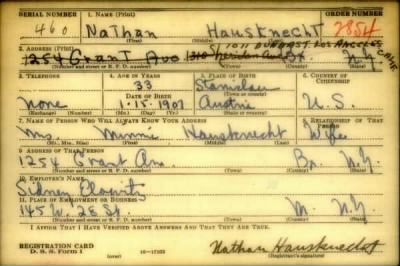 SERIAL NUMBER 1. NAME (Print) ORDER NUMBER
460 Nathan Hausknecht 2854
(First) (Middle) (Last)
2. ADDRESS (Print) 1011 Los Angeles
1254 Grant Ave 310 Sheridan Ave Bx. N.Y. Calif
(Number and street or R. F. D. number) (Town) (County) (State)
3. TELEPHONE 4. AGE IN YEARS 5. PLACE OF BIRTH 6. COUNTRY OF CITIZENSHIP
33 Stanislau
DATE OF BIRTH (Town or county)
None 1-15-1907 Austria U.S.
(Exchange) (Number) (Mo.) (Day) (Yr.) (State or country)
7. NAME OF PERSON WHO WILL ALWAYS KNOW YOUR ADDRESS 8. RELATIONSHIP OF THAT PERSON
Mrs. Minnie Hausknecht Wife
(Mr., Mrs., Miss) (First) (Middle) (Last)
9. ADDRESS OF THAT PERSON
1254 Grant Ave. Bx. N.Y.
(Number and street or R. F. D. number) (Town) (County) (State)
10. EMPLOYER'S NAME
Sidney
11. PLACE OF EMPLOYMENT OR BUSINESS
145 W. 28 St. M. N.Y.
(Number and street or R. F. D. number) (Town) (County) (State)
I AFFIRM THAT I HAVE VERIFIED ABOVE ANSWERS AND THAT THEY ARE TRUE.
REGISTRATION CARD
D. S. S. FORM 1 16—17105 Nathan Hausknecht
(over) (Registrant's signature)